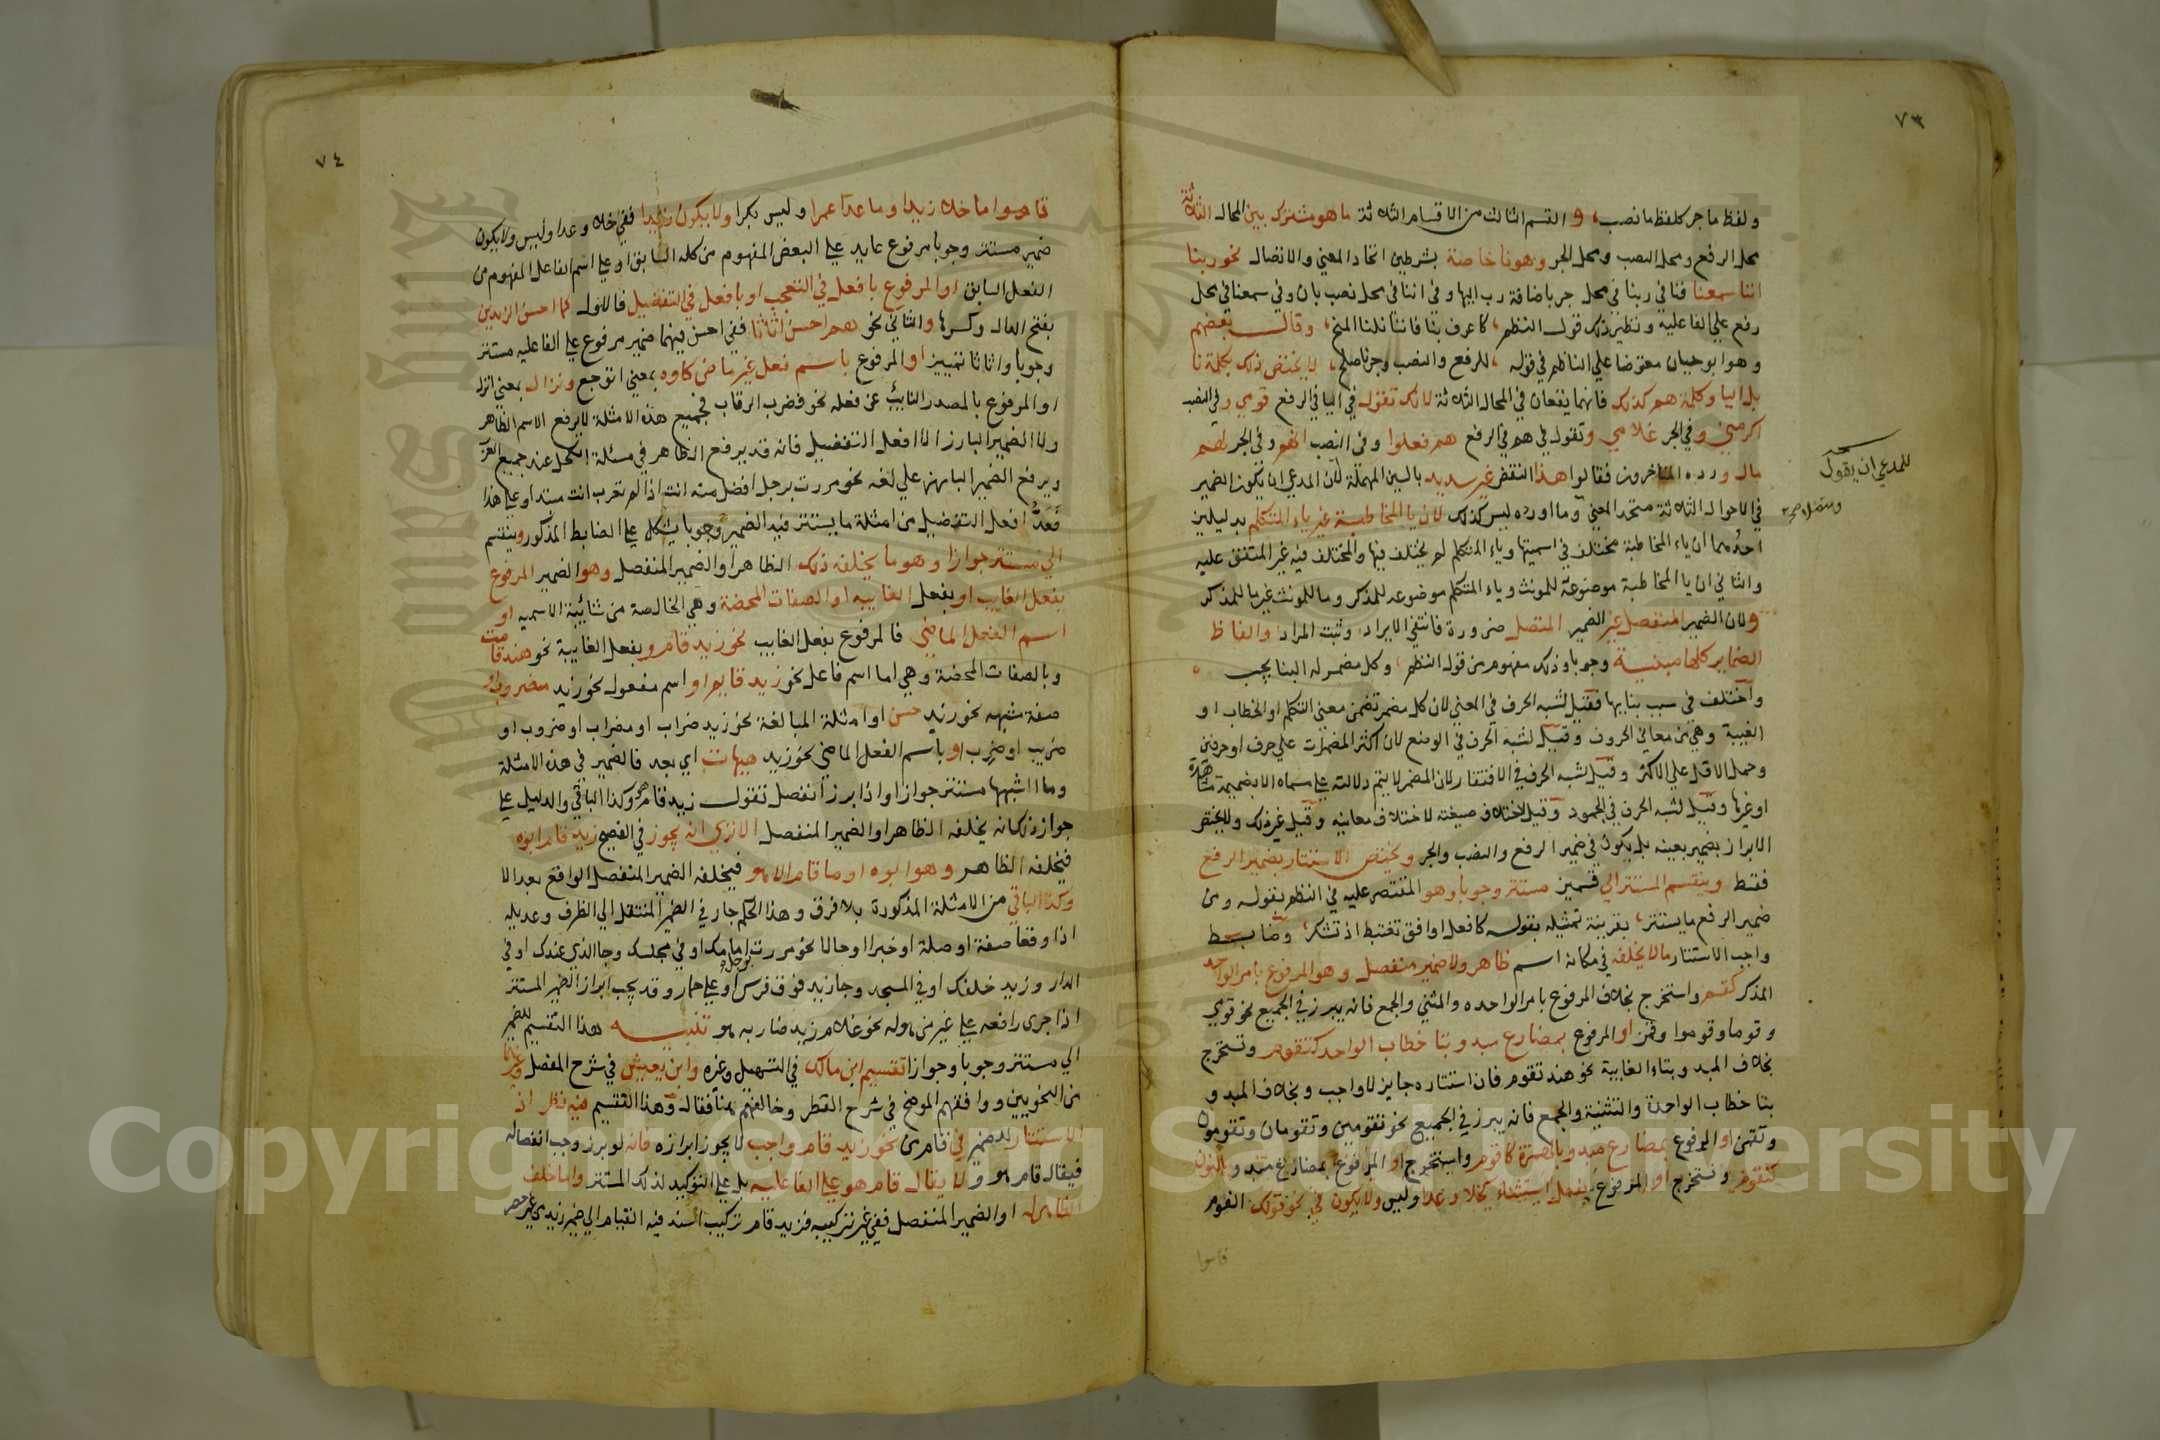 ٧٣
ولفظ ما جر كلفظ ما نصب، و القسم الثالث من الاقسام الثلاثة ما هو مشترك بين المحال الثلاثة
محل الرفع ومحل النصب ومحل الجر وهو نا خاصة بشرطين اتحاد المعنى والاتصال نحو ربنا
اننا سمعنا فنا في ربنا في محل جر باضافة رب اليها وفي اننا في محل نصب بان وفي سمعنا في محل
رفع علي الفاعلية ونظير ذلك قول النظم، كاعرف بنا فاننا نلنا المنح، وقال بعضهم
وهو ابو حيان معترضا علي الناظم في قوله، للرفع والنصب وجر نا صلح، لا يختص ذلك بكلمة نا
بل اليا وكلمة هم كذلك فانهما يقعان في المحال الثلاثة لانك تقول في اليا في الرفع قومي وفي النصب
اكرمني وفي الجر غلامي وتقول في هم في الرفع هم فعلوا وفي النصب انهم وفي الجر لهم
مال ورده المتاخرون فقالوا هذا النقض غير سديد بالسين المهملة لان المدعي ان يكون الضمير
للمدعي ان يقول
في الاحوال الثلاثة متحد المعني وما اورده ليس كذلك لان يا المخاطبة غير ياء المتكلم بدليلين
احدهما ان ياء المخاطبة مختلف في اسميتها وياء المتكلم لم يختلف فيها والمختلف فيه غير المتفق عليه
والثاني ان يا المخاطبة موضوعة للمونث وياء المتكلم موضوعه للمذكر وما للمونث غير ما للمذكر
ولان الضمير المنفصل غير الضمير المتصل ضرورة فانتفي الايراد وثبت المراد والفاظ
الضماير كلها مبنية وجوبا وذلك مفهوم من قول النظم، وكل مضمر له البنا يجب
واختلف في سبب بنايها فقيل لشبه الحرف في المعني لان كل مضمر تضمن معني التكلم او الخطاب او
الغيبة وهي من معاني الحروف وقيل لشبه الحرف في الوضع لان اكثر المضمرات علي حرف او حرفين
وحمل الاقل علي الاكثر وقيل لشبه الحرف في الافتقار لان المضمر لا يتم دلالته علي مسماه الا بضميمة مشاهدة
او غيرها وقيل لشبه الحرف في الجمود وقيل لاختلاف صيغته لاختلاف معانيه وقيل غير ذلك ولا يختص
الابراز بضمير بعينه بل يكون في ضمير الرفع والنصب والجر ويختص الاستتار بضمير الرفع
فقط وينقسم المستتر الي قسمين مستتر وجوبا وهو المقتصر عليه في النظم بقوله ومن
ضمير الرفع ما يستتر، بقرينة تمثيله بقوله كافعل اوافق نغتبط اذ تشكر، وضابط
واجب الاستتار ما لا يخلفه في مكانه اسم ظاهر ولا ضمير منفصل وهو المرفوع بامر الواحد
المذكر كقم واستخرج بخلاف المرفوع بامر الواحده والمثني والجمع فانه يبرز في الجميع نحو قومي
وقوما وقوموا وقمن او المرفوع بمضارع مبدو بتا خطاب الواحد كتقوم وتستخرج
بخلاف المبدو بتاء الغايبة نحو هند تقوم فان استتاره جايز لا واجب وبخلاف المبدو
بتا خطاب الواحدة والتثنية والجمع فانه يبرز في الجميع نحو تقومين وتقومان وتقومون
وتقمن او المرفوع بمضارع مبدو بالهمزة كاقوم واستخرج او المرفوع بمضارع مبدو بالنون
كنقوم ونستخرج او المرفوع بفعل استثناء كخلا وعدا وليس ولا يكون في نحو قولك القوم
قاموا
٧٤
قاموا ما خلا زيدا وما عدا عمرا وليس بكرا ولا يكون زيدا ففي خلا وعدا وليس ولا يكون
ضمير مستتر وجوبا مرفوع عايد علي البعض المفهوم من كله السابق او علي اسم الفاعل المفهوم من
الفعل السابق او المرفوع بافعل في التعجب او بافعل في التفضيل فالاول كما احسن الزيدين
بفتح الدال وكسرها والثاني نحو هم احسن اثاثا ففي احسن فيهما ضمير مرفوع علي الفاعليه مستتر
وجوبا واثاثا تمييز او المرفوع باسم فعل غير ماض كاوه بمعني اتوجع ونزال بمعني انزل
او المرفوع بالمصدر النايب عن فعله نحو فضرب الرقاب فجميع هذه الامثلة لا يرفع الاسم الظاهر
ولا الضمير البارز الا افعل التفضيل فانه قد يرفع الظاهر في مسئلة الكحل عند جميع العرب
ويرفع الضمير البارز علي لغه نحو مررت برجل افضل منه انت اذا لم تعرب انت مبتدا وعلي هذا
فعد افعل التفضيل من امثلة ما يستتر فيه الضمير وجوبا يشكل علي الضابط المذكور وينقسم
الي مستتر جوازا وهو ما يخلفه ذلك الظاهر او الضمير المنفصل وهو الضمير المرفوع
بفعل الغايب او بفعل الغايبه او الصفات المحضة وهي الخالصة من شائبة الاسميه او
اسم الفعل الماضي فالمرفوع بفعل الغايب نحو زيد قام وبفعل الغايبة نحو هند قامت
وبالصفات المحضة وهي اما اسم فاعل نحو زيد قايم او اسم مفعول نحو زيد مضروب او
صفة مشبهه نحو زيد حسن او امثلة المبالغة نحو زيد ضراب او مضراب او ضروب او
ضريب او ضرب او باسم الفعل الماضي نحو زيد هيهات اي بعد فالضمير في هذه الامثلة
وما اشبهها مستتر جوازا واذا برز انفصل تقول زيد قام هو وكذا الباقي والدليل علي
جواز ذلك انه يخلفه الظاهر او الضمير المنفصل الا تري انه يجوز في الفصيح زيد قام ابوه
فيخلفه الظاهر وهو ابوه او ما قام الا هو فيخلفه الضمير المنفصل الواقع بعد الا
وكذا الباقي من الامثلة المذكورة بلا فرق وهذا الحكم جار في الضمير المنتقل الي الظرف وعديله
اذا وقعا صفة او صلة او خبرا او حالا نحو مررت برجل امامك او في مجلسك وجا الذي عندك او في
الدار وزيد خلفك او في المسجد وجا زيد فوق فرس او علي حمار وقد يجب ابراز الضمير المستتر
اذا جري رافعه علي غير من هو له نحو غلام زيد ضاربه هو تنبيه هذا التقسيم للضمير
الي مستتر وجوبا وجوازا تقسيم ابن مالك في التسهيل وغيره وابن يعيش في شرح المفصل وغيرهما
من النحويين ووافقهم الموضح في شرح القطر وخالفهم هنا فقال وهذا التقسيم فيه نظر اذ
الاستتار للضمير في قام من نحو زيد قام واجب لا يجوز ابرازه فانه لو برز وجب انفصاله
فيقال قام هو ولا يقال قام هو علي الفاعليه بل علي التوكيد لذلك المستتر واما خلف
الظاهر له او الضمير المنفصل ففي غير تركيبه فزيد قام تركيب اسند فيه القيام الي ضمير زيد
Copyright © King Saud University